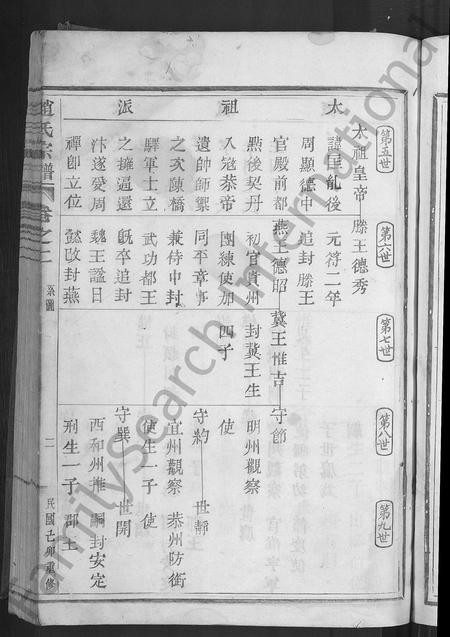 太祖派
第五世
第六世
第七世
第八世
第九世
太祖皇帝
滕王德秀
諱匡胤後
元符二年
周顯德中
追封滕王
官殿前都
燕王德昭
冀王惟吉
守節
點後契丹
初官貴州
封冀王生
明州觀察
入寇恭帝
團練使加
四子
使
遺帥師禦
同平章事
守約
世靜
之次陳橋
兼侍中封
宜州觀察
恭州防衛
驛軍士立
武功郡王
使生一子
使
之擁逼還
既卒追封
守巽
世開
汴遂受周
魏王諡曰
西和州推
嗣封安定
禪即立位
懿改封燕
刑生一子
郡王
趙氏宗譜
卷之二
系圖
二
民國己卯重修
FamilySearch International